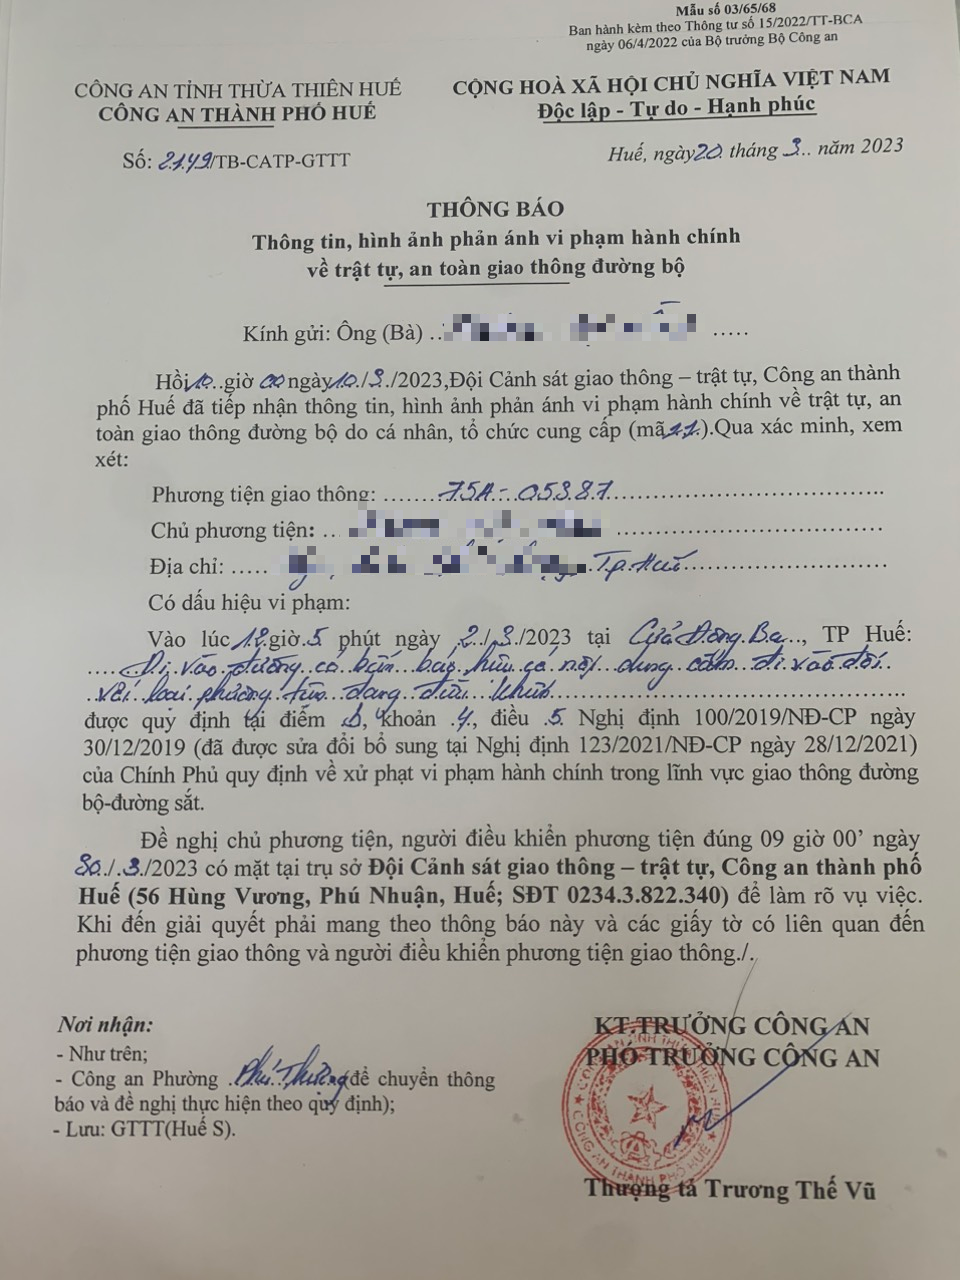 Mẫu số 03/65/68
Ban hành kèm theo Thông tư số 15/2022/TT-BCA
ngày 06/4/2022 của Bộ trưởng Bộ Công an
CÔNG AN TỈNH THỪA THIÊN HUẾ
CÔNG AN THÀNH PHỐ HUẾ
Số: 2149/TB-CATP-GTTT
CỘNG HOÀ XÃ HỘI CHỦ NGHĨA VIỆT NAM
Độc lập - Tự do - Hạnh phúc
Huế, ngày 20 tháng 3.. năm 2023
THÔNG BÁO
Thông tin, hình ảnh phản ánh vi phạm hành chính
về trật tự, an toàn giao thông đường bộ
Kính gửi: Ông (Bà) .. .....
Hồi 10..giờ 00 ngày 10./3./2023,Đội Cảnh sát giao thông – trật tự, Công an thành
phố Huế đã tiếp nhận thông tin, hình ảnh phản ánh vi phạm hành chính về trật tự, an
toàn giao thông đường bộ do cá nhân, tổ chức cung cấp (mã ).Qua xác minh, xem
xét:
Phương tiện giao thông: .......75A-05387...............
Chủ phương tiện: ... ...............
Địa chỉ: ..... .Tp.Huế...............
Có dấu hiệu vi phạm:
Vào lúc 12.giờ.5 phút ngày 2./3./2023 tại Cửa Đông Ba.., TP Huế:
....Đi vào đường có biển báo hiệu có nội dung cấm đi vào đối
với loại phương tiện đang điều khiển...............
được quy định tại điểm b, khoản 4, điều 5 Nghị định 100/2019/NĐ-CP ngày
30/12/2019 (đã được sửa đổi bổ sung tại Nghị định 123/2021/NĐ-CP ngày 28/12/2021)
của Chính Phủ quy định về xử phạt vi phạm hành chính trong lĩnh vực giao thông đường
bộ-đường sắt.
Đề nghị chủ phương tiện, người điều khiển phương tiện đúng 09 giờ 00’ ngày
30./.3./2023 có mặt tại trụ sở Đội Cảnh sát giao thông – trật tự, Công an thành phố
Huế (56 Hùng Vương, Phú Nhuận, Huế; SĐT 0234.3.822.340) để làm rõ vụ việc.
Khi đến giải quyết phải mang theo thông báo này và các giấy tờ có liên quan đến
phương tiện giao thông và người điều khiển phương tiện giao thông./.
Nơi nhận:
- Như trên;
- Công an Phường .Phú Thượng để chuyển thông
báo và đề nghị thực hiện theo quy định);
- Lưu: GTTT(Huế S).
KT.TRƯỞNG CÔNG AN
PHÓ TRƯỞNG CÔNG AN
CÔNG AN TỈNH THỪA THIÊN HUẾ
CÔNG AN THÀNH PHỐ HUẾ
Thượng tá Trương Thế Vũ